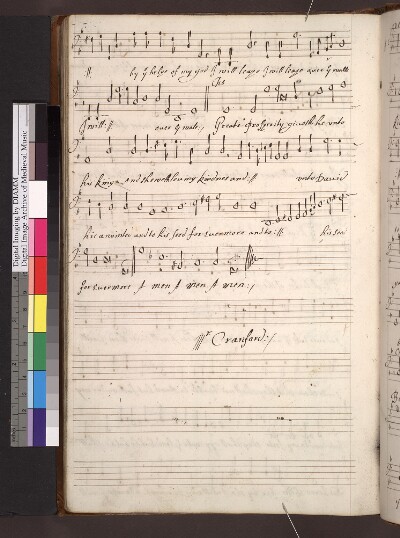 by ye helpe of my god I will leape I will leape over ye walle
I will :// over ye walle :/ Greate prosperity giveth he unto
his kinge and sheweth lovinge kindnes and :// unto David
his anointed and to his seed for evermore and to :// his seed
for evermore A men A men A men :/
Mr Cranford :/
Digital Images by DIAMM
Digital Image Archive of Medieval Music